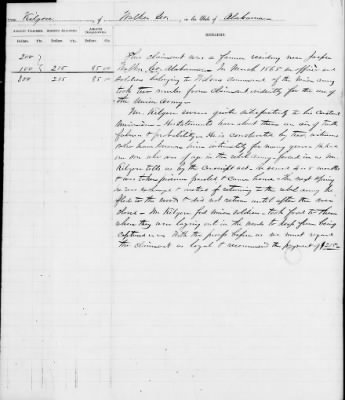 Kilgore, of Walker Co., in the State of Alabama
AMOUNT CLAIMED. AMOUNT ALLOWED. AMOUNT DISALLOWED. REMARKS.
Dollars. Cts. Dollars. Cts. Dollars. Cts.
200
100 215 85 00
300 215 85 00
This claimant was a farmer residing near Jasper
Walker Co. Alabama. In March 1865 an officer and
soldiers belonging to Wilsons command of the union army
took two mules from claimant evidently for the use of
the Union Army.
Mr. Kilgore swears quite satisfactorily to his constant
Unionism. His statements have about them an air of truth-
fulness & probability. He is corroborated by two witnesses
who have known him intimately for many years. He had
one son who was in the rebel army forced in as Mr.
Kilgore tells us by the Conscript act. He served months
& was taken prisoner paroled & came home. The next spring
he was exchanged & instead of returning to the rebel army he
fled to the woods & did not return until after the war
closed. Mr. Kilgore fed union soldiers & took food to them
when they were laying out in the woods to keep from being
captured. With this proof before us we must regard
the claimant as loyal & recommend the payment of $215.00